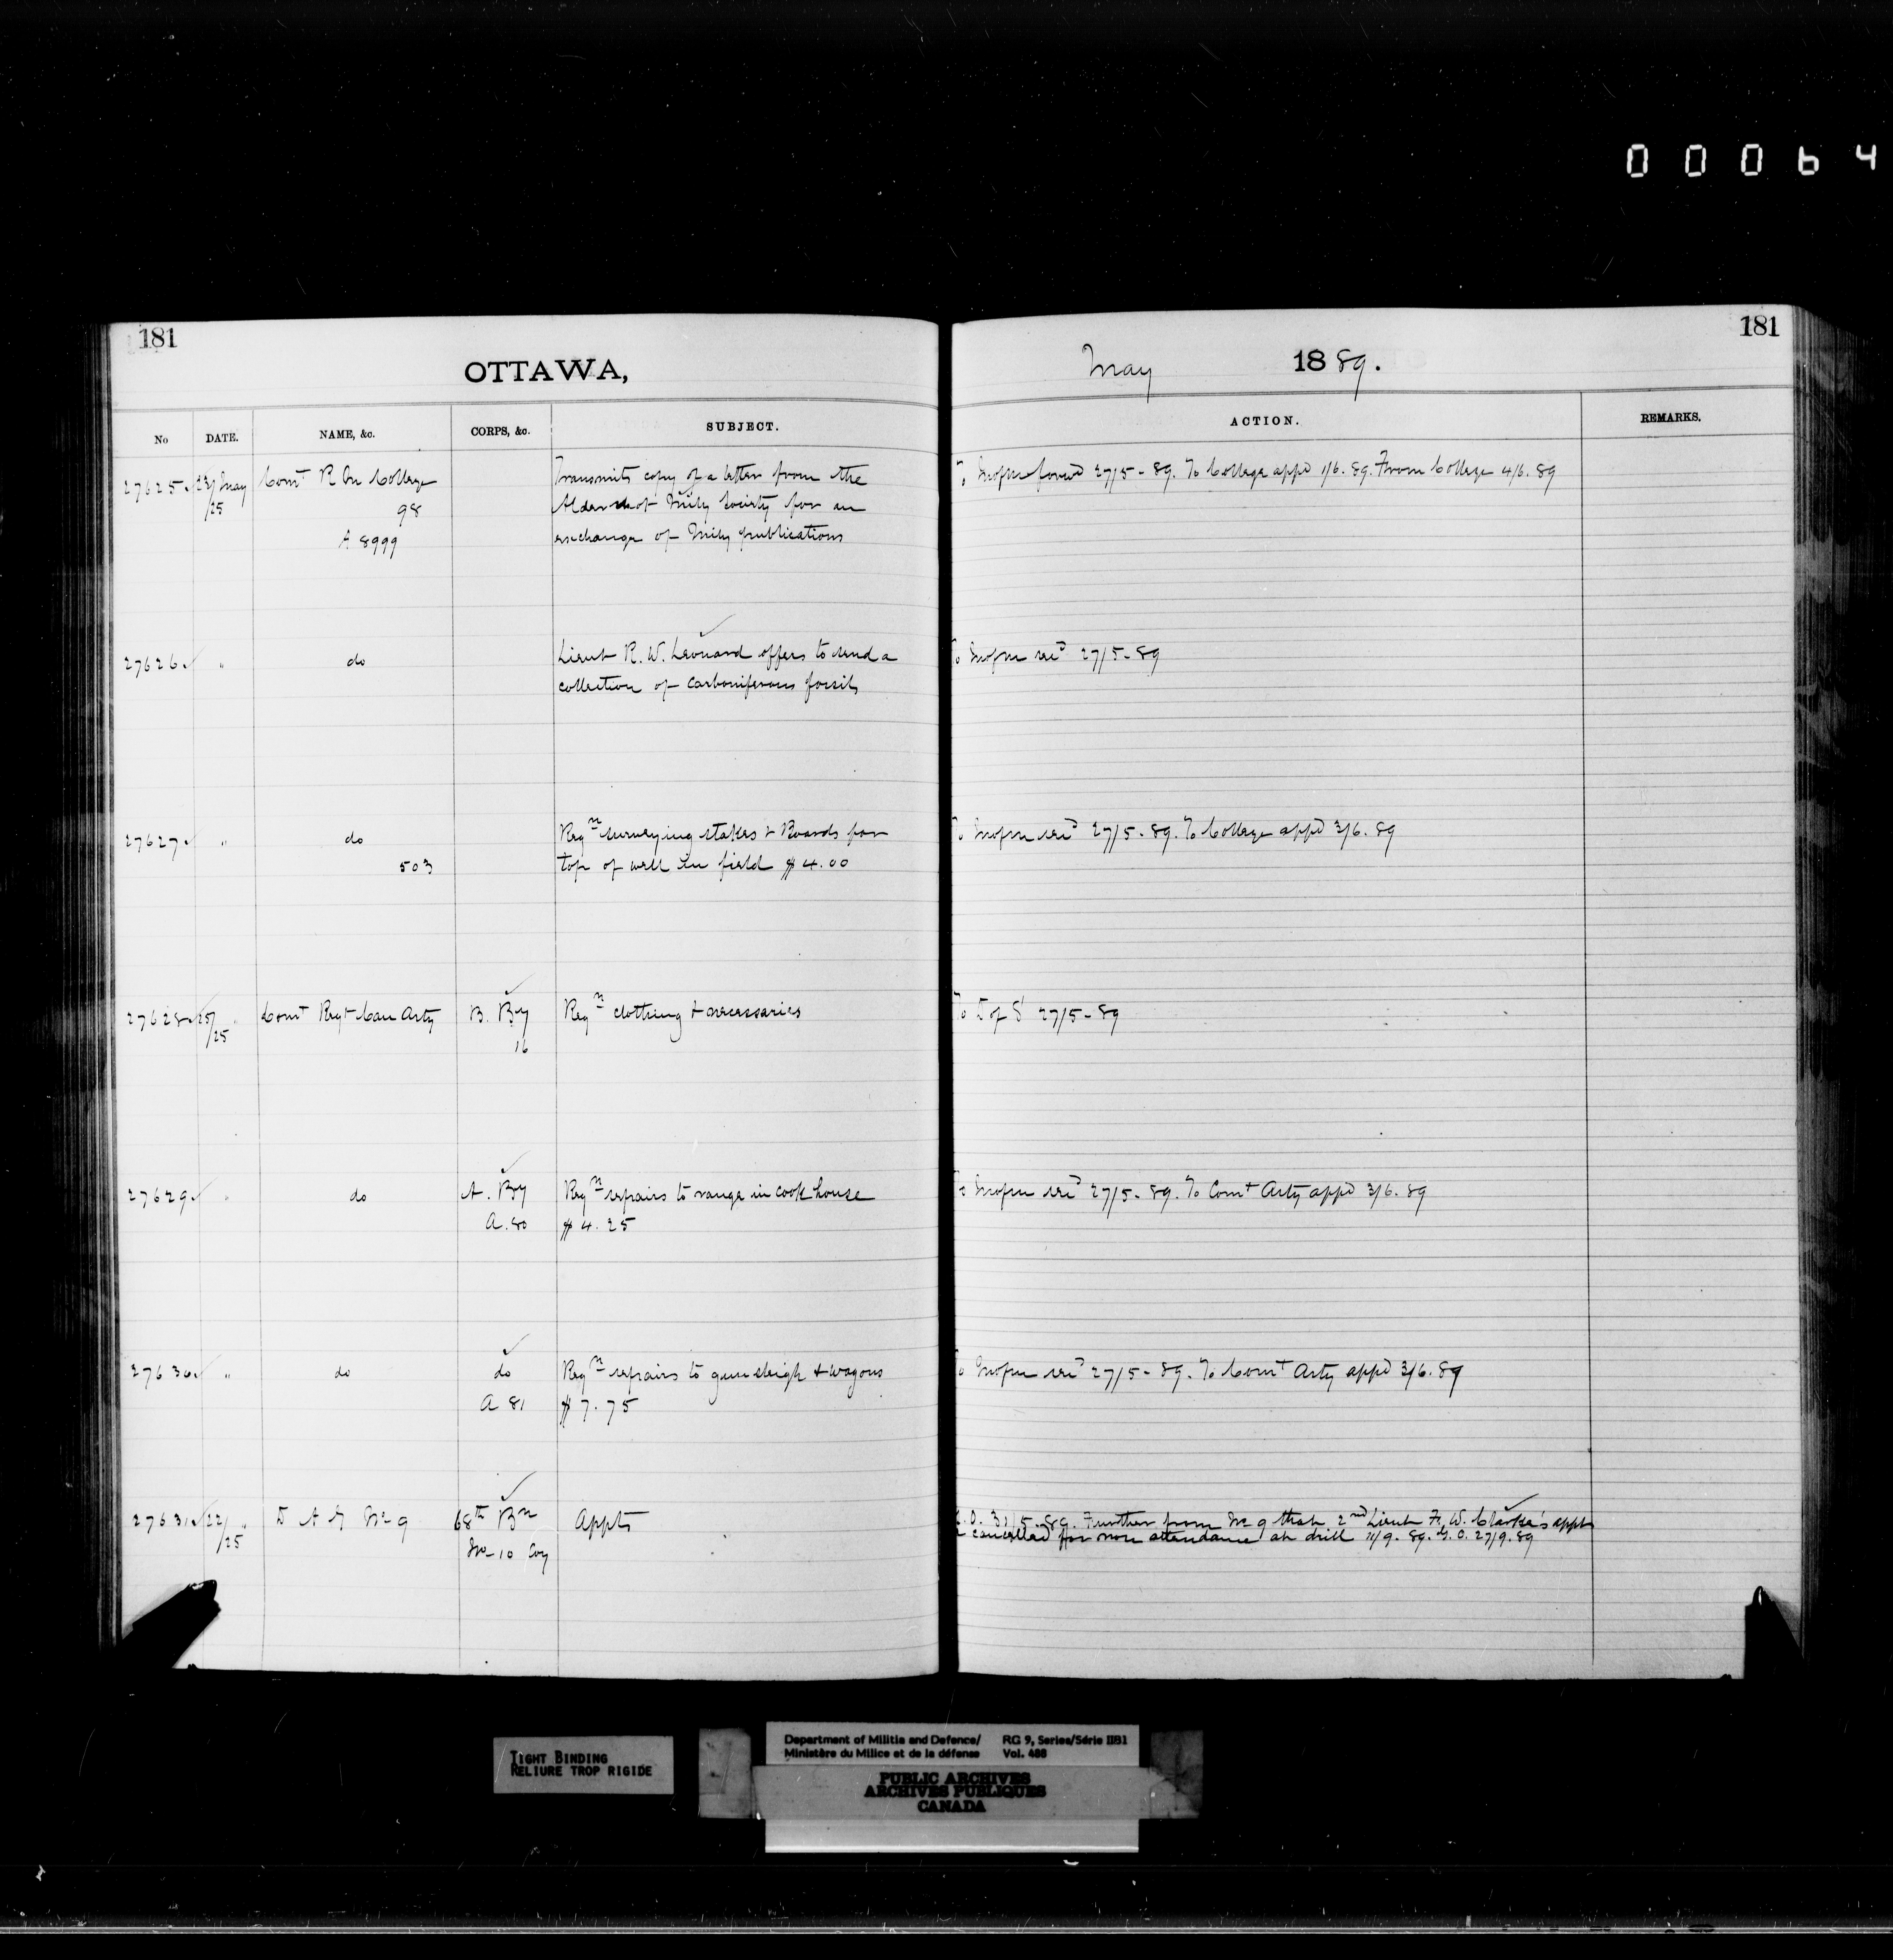 00064
181
OTTAWA,
May 1889.
181
No DATE. NAME, &c. CORPS, &c. SUBJECT.
ACTION. REMARKS.
27625 23/25 May Comt R M College Transmits copy of a letter from the
98 Aldershot Mily Society for an
A 8999 exchange of Mily publications
To Mofm forwd 27/5-89. To College appd 1/6.89. From College 4/6.89
27626 " do Lieut R. W. Leonard offers to send a
collection of Carboniferous fossils
To Mofm 27/5-89
27627 " do Reqn surveying stakes & Boards for
503 top of well in field $4.00
To Mofm 27/5-89. To College appd 3/6.89
27628 25/25 " Comt Regt Can Arty B. By Reqn clothing & necessaries
16
To D of S 27/5-89
27629 " do A. By Reqn repairs to range in cook house
A.80 $4.25
To Mofm 27/5-89. To Comt Arty appd 3/6.89
27630 " do do Reqn repairs to gun sleigh & wagons
A 81 $7.75
To Mofm 27/5-89. To Comt Arty appd 3/6.89
27631 22/25 " D A G No 9 68th Bn Appts
No 10 Coy
G.O. 31/5-89. Further from No 9 that 2nd Lieut F. W. Clarke's appt
be cancelled for non attendance at drill 11/9.89. G.O. 27/9.89
TIGHT BINDING
RELIURE TROP RIGIDE
Department of Militia and Defence/ RG 9, Series/Série IIB1
Ministère du Milice et de la défense Vol. 488
PUBLIC ARCHIVES
ARCHIVES PUBLIQUES
CANADA